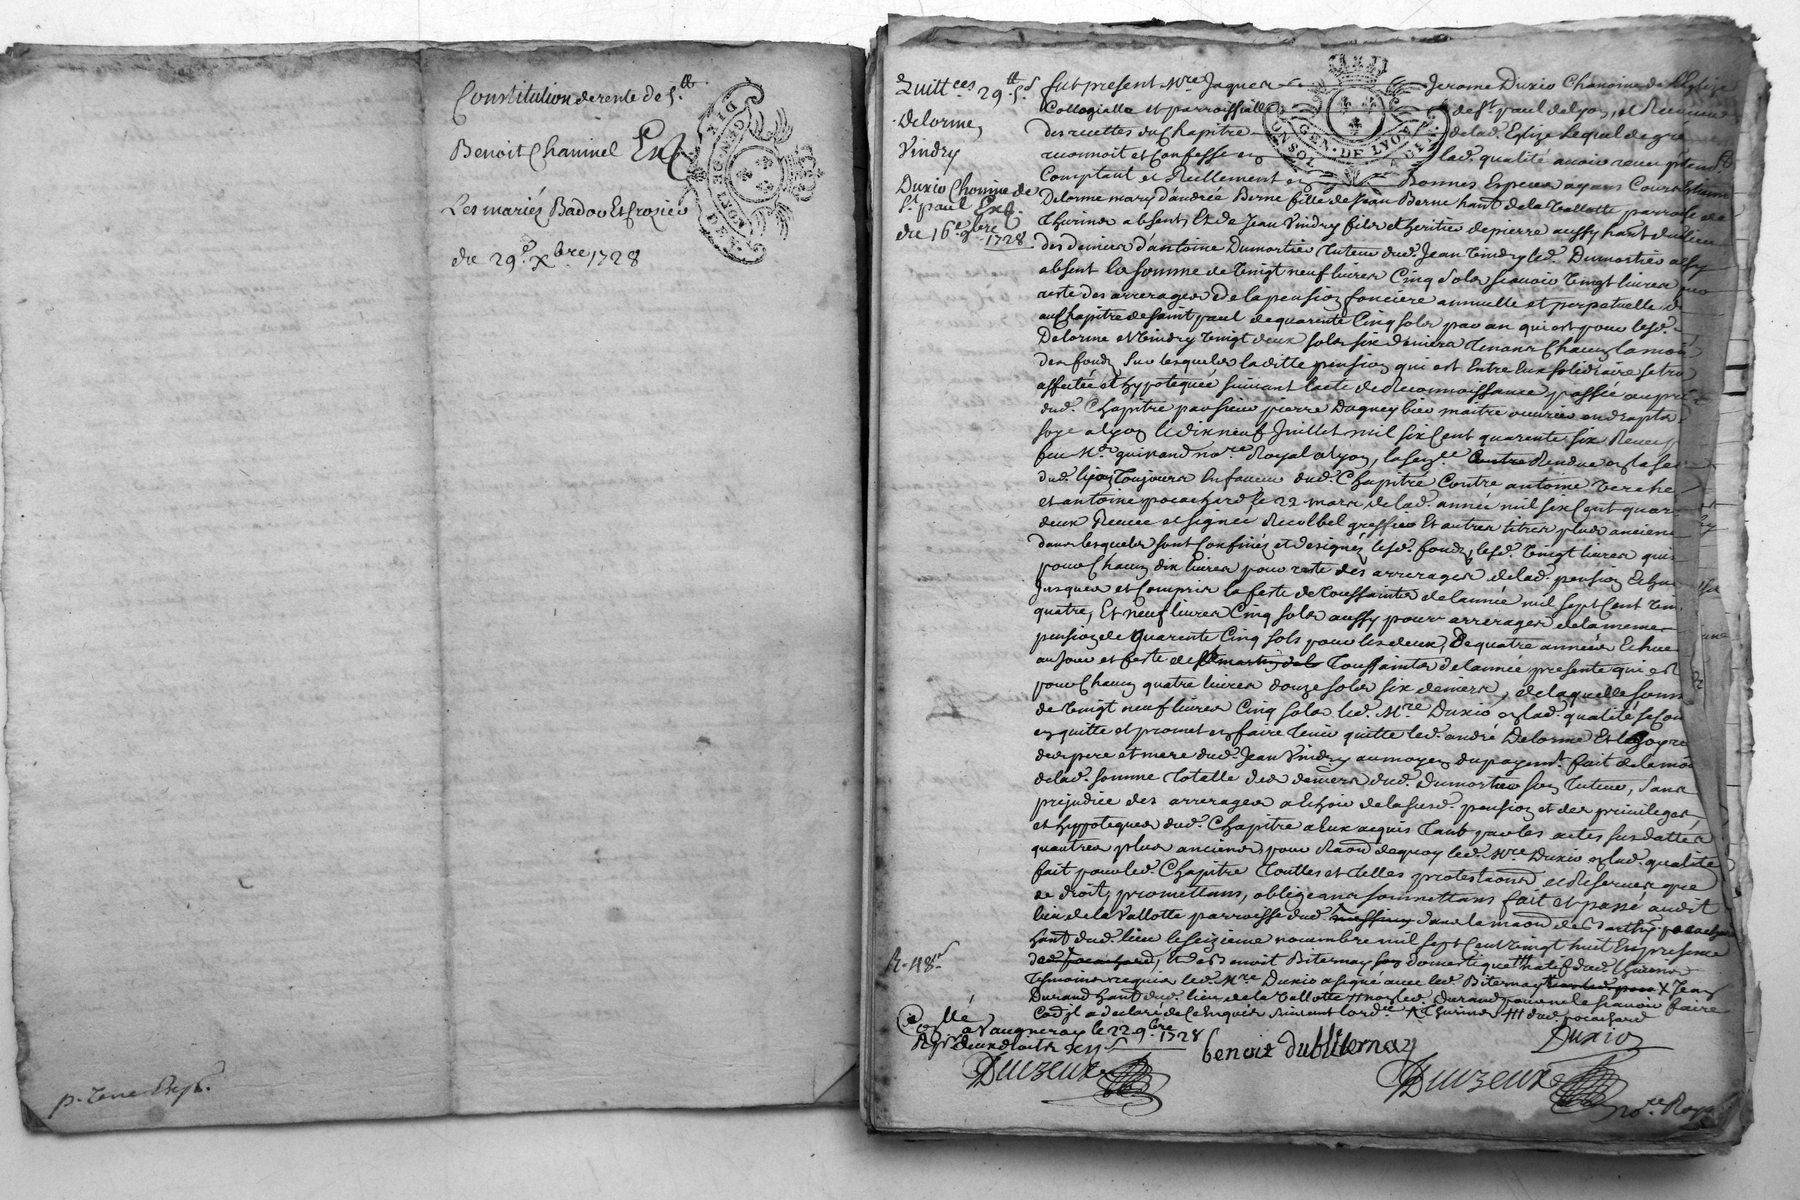 Constitution de rente de 5.tt
Benoit Chaninel Ext
Les mariés Badou Et Crozier
du 29.e Xbre 1728
GEN. DE LYON
p. Terre
Quittces 29tt 5s
Delorme,
Vindry
Duxio Chonine de
St. paul Ext.
du 16e 9bre 1728.
R. 48s
GEN. DE LYON
fut present Mre Jaques Jerome Duxio Chanoine de l'Eglize
Collegialle et parroissialle de St paul de Lyon, et Receveur
des recettes du Chapitre de lad. Eglize Lequel de gre
reconnoit et Confesse en lad. qualité avoir receu
Comptant et Reellement en Bonnes Especes ayans Cours
Delorme mary d'andrée Berne fille de Jean Berne hant de la Vallotte parroisse de
Thurins absent, Et de Jean Vindry fils et heritier de pierre aussy hant dud. lieu
des deniers d'antoine Dumortier Tuteur dud. Jean Vindry led. Dumortier
absent la somme de Vingt neuf livres Cinq Sols scavoir Vingt livres
reste des arrerages de la pension fonciere annuelle et perpetuelle
au Chapitre de saint paul de quarente Cinq sols par an qui est pour lesd.
Delorme et Vindry Vingt deux sols six deniers Tenans Chacun la moi
des fonds sur lesquels laditte pension qui est Entre Eux solidiaire se tr
affectée et hypotequée suivant l'acte de Reconnoissance passée au pr
dud. Chapitre par sieur pierre Dagneybier maitre ouvrier en draps
soye a Lyon le dix neuf Juillet mil six Cent quarente six Receu
feu Me. guirand nore Royal a Lyon, la sence Rendue en la se
dud. Lyon Toujours En faveur dud. Chapitre Contre antoine Verche
et antoine pocachard le 22 mars de lad. année mil six Cent quar
deux Receue et signée greffier Et autres titres plus anciens
dans lesquels sont Confinés et designés lesd. fonds, lesd. Vingt livres qui
pour Chacun dix livres pour reste des arrerages de lad. pension Echu
Jusques et Compris la feste de Toussaints de l'année mil sept Cent vin
quatre, Et neuf livres Cinq sols aussy pour arrerages de la meme
pension de quarente Cinq sols pour les deux, De quatre années Echues
au Jour et feste de Toussaints de l'année presente qui est
pour Chacun quatre livres douze sols six deniers, de laquelle somm
de Vingt neuf livres Cinq sols led. Mre Duxio en lad. qualité se Con
en quitte et promet en faire Tenir quitte led. andré Delorme Et
des pere et mere dud. Jean Vindry au moyen du payemt. fait de la moi
de lad. somme Totalle des deniers dud. Dumortier son Tuteur, sans
prejudice des arrerages a Echoir de la susd. pension et des privileges
et hypoteques dud. Chapitre a Eux acquis Tant par les actes sus dattés
qu'autres plus anciens, pour Raon de quoy led. Mre Duxio en lad. qualité
fait pour led. Chapitre Touttes et Telles protestaons et Reserves que
de droit, promettans, obligeans soumettans fait et passé audit
lieu de la Vallotte parroisse dud. dans la maon de Barthy. pocachard
hant dud. lieu le seizieme novembre mil sept Cent vingt huit En presence
de Benoit Biternay domestique natif dud. Thurins
Temoins requis led. Mre Duxio a signé avec led. Biternay X Jean
Durand hant dud. lieu de la Vallotte non led. Durand pour ne le scavoir faire
Co il a declaré de ce Enquis suivant l'ordce X Thurins ttt dud. pocachard
Collé
a Vaugneray le 22 9bre 1728
deux droits
benoit dubiternay
Duxio
Duizeux
Duizeux
nore Roy